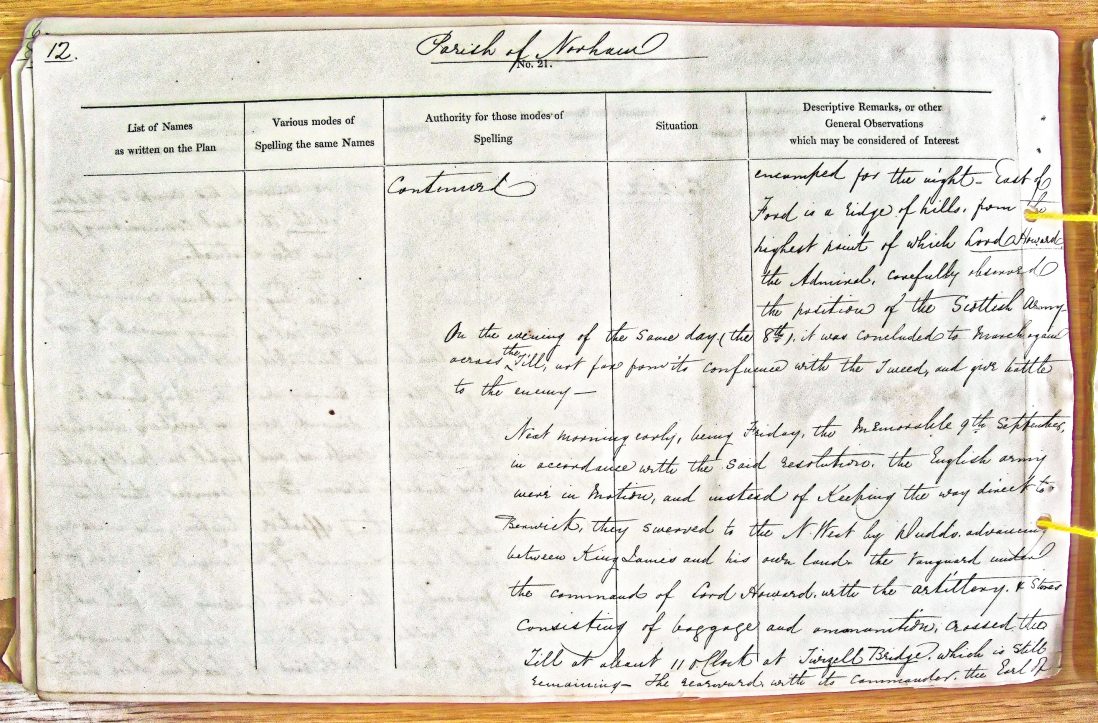 12.
Parish of Norham
No. 21.
List of Names
as written on the Plan
Various modes of
Spelling the same Names
Authority for those modes of
Spelling
Situation
Descriptive Remarks, or other
General Observations
which may be considered of Interest
Continued
encamped for the night – East of
Ford is a ridge of hills, from the
highest point of which Lord Howard,
the Admiral, carefully observed
the position of the Scottish Army
On the evening of the same day (the 8th), it was concluded to march again
across the Till, not far from its confuence with the Tweed, and give battle
to the enemy –
Next morning early, being Friday, the memorable 9th September,
in accordance with the said resolution, the English army
were in motion, and instead of Keeping the way direct to
Berwick, they swerved to the N West by Duddo, advancing
between King James and his own land. the Vanguard under
the command of Lord Howard, with the artillery, & Stores
Consisting of baggage and ammunition, crossed the
Till at about 11 o'Clock at Twizell Bridge, which is still
remaining – The rearward, with its Commander, the Earl of